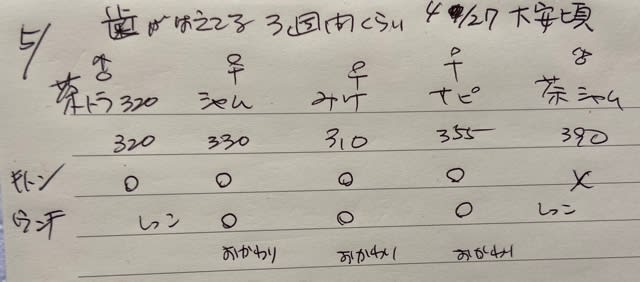 5/
歯がはえてる 3週間くらい 4/27 大安頃
♂ ♀ ♀ ♀ ♂
茶トラ320 シャム みけ サビ 茶シャム
320 330 310 355 390
○ ○ ○ ○ ×
ウンチ しっこ ○ ○ ○ しっこ
おかわり おかわり おかわり